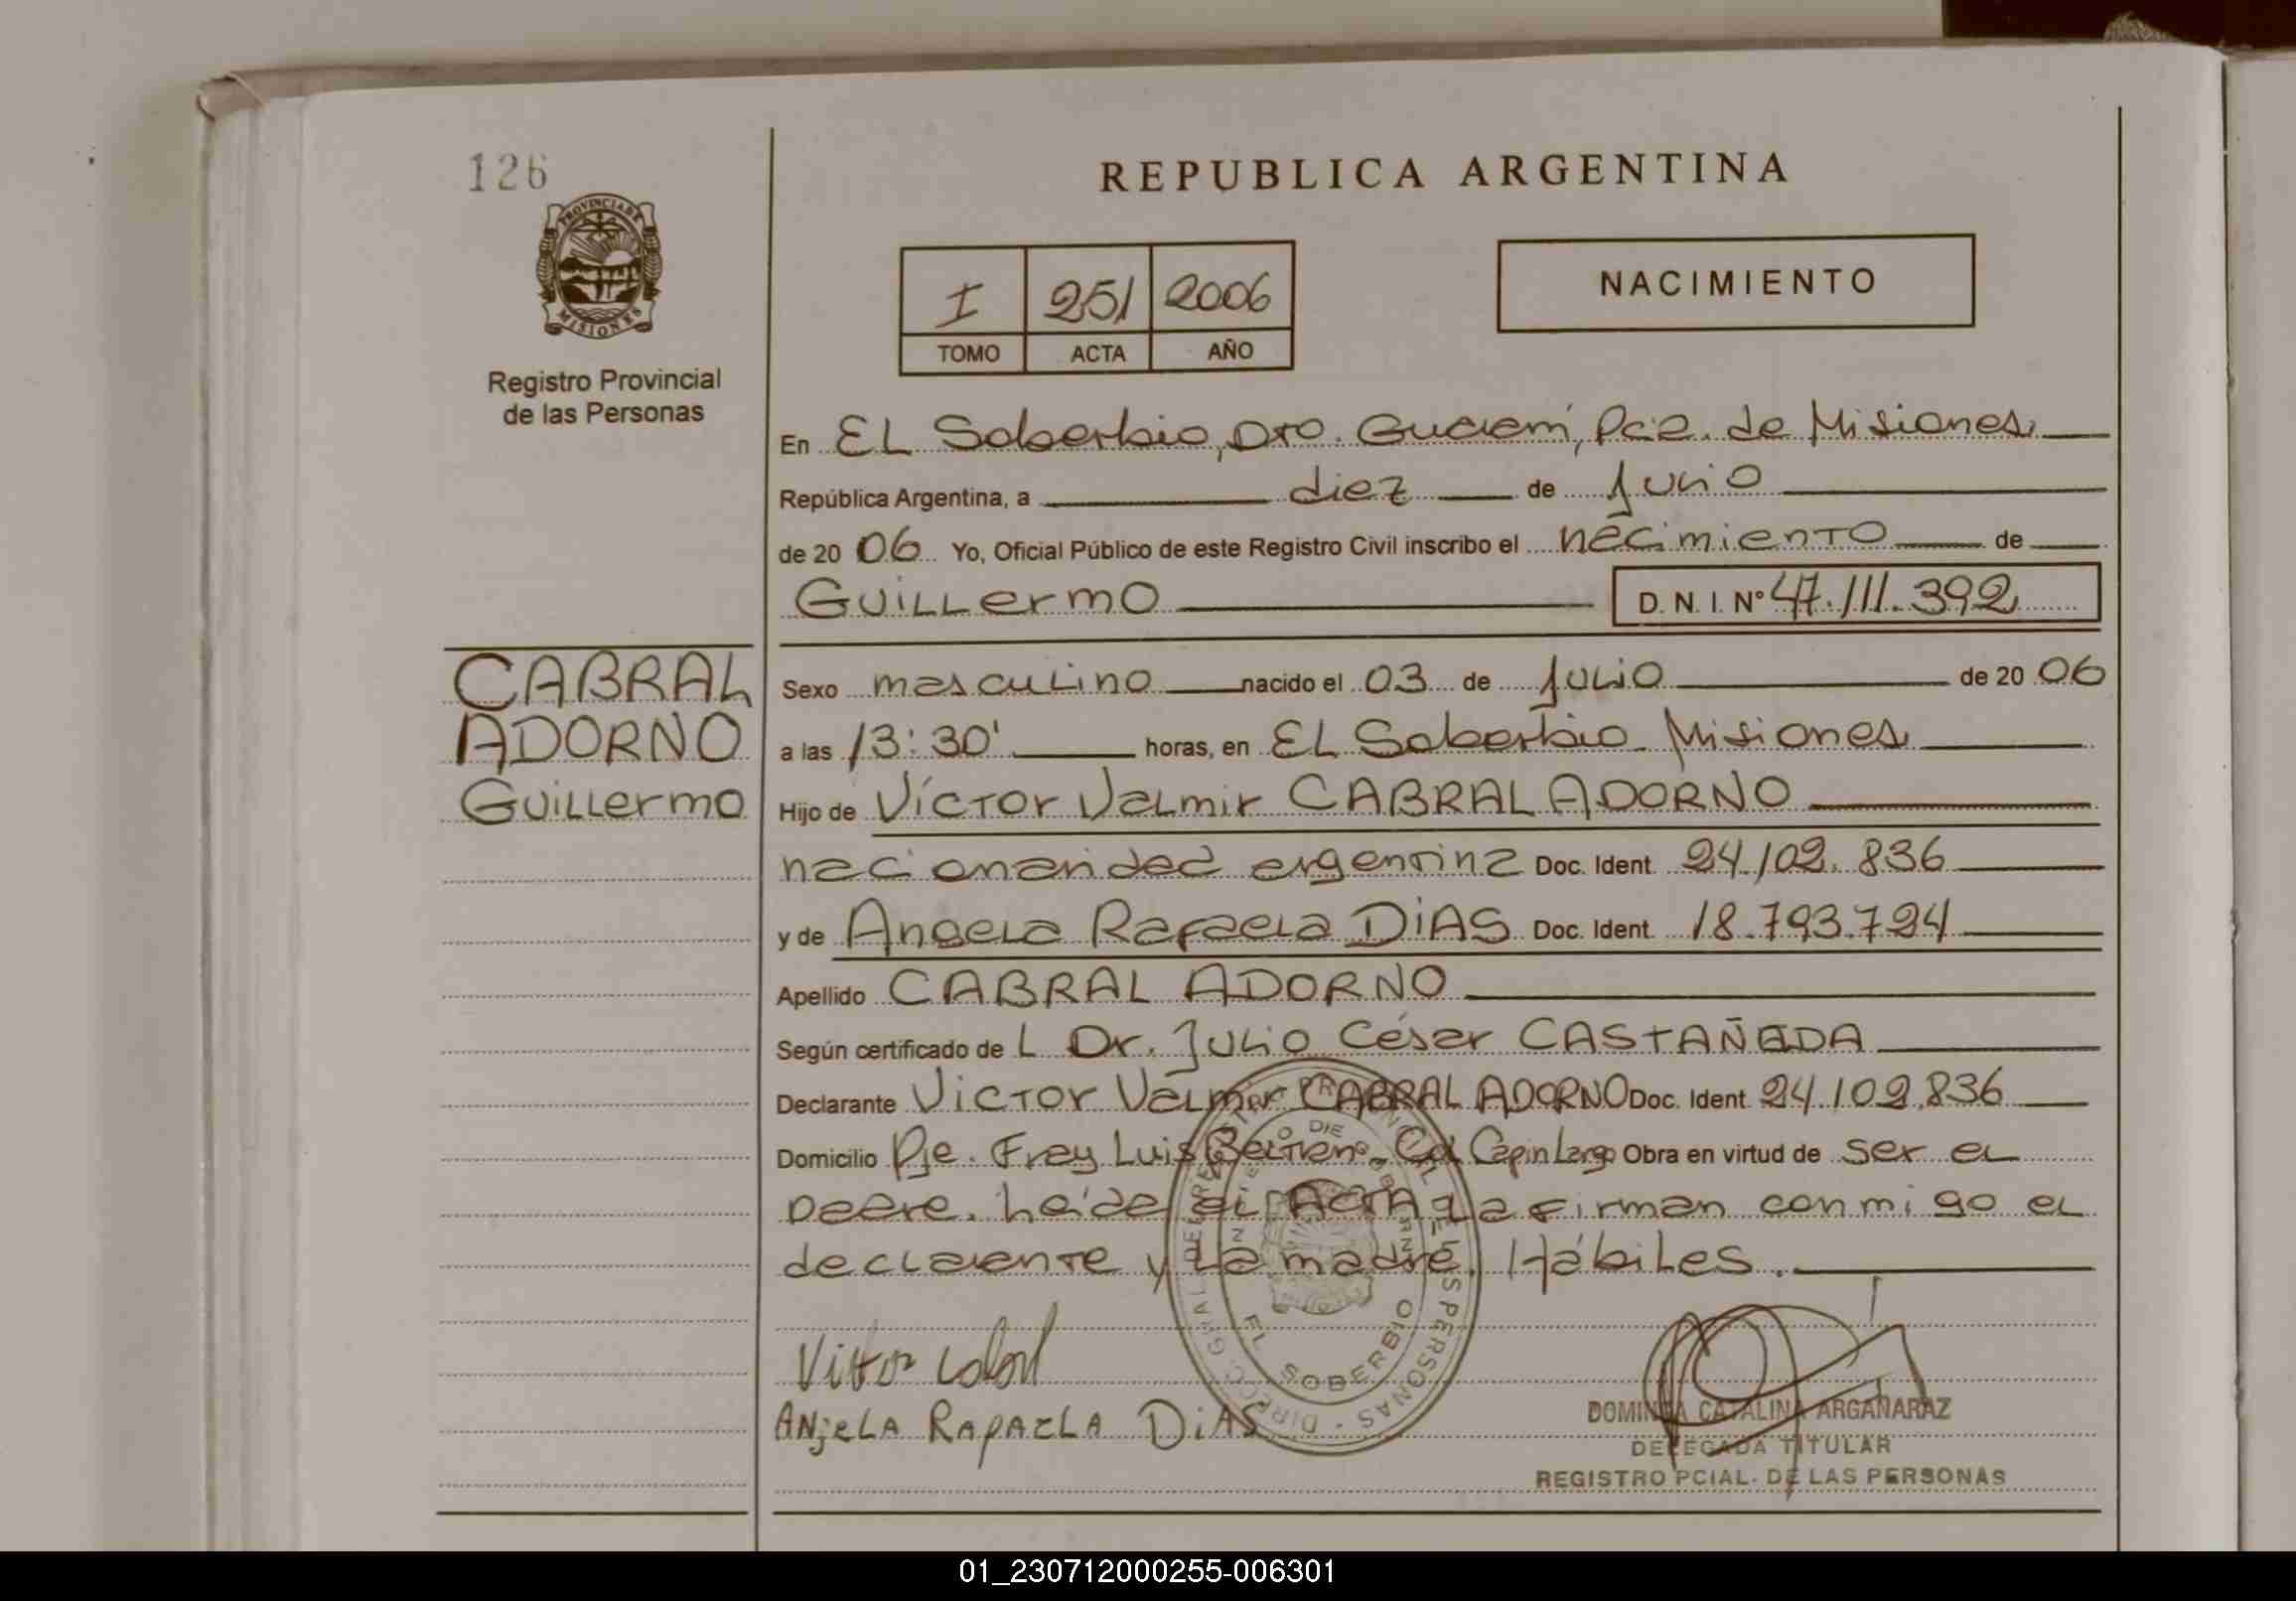 126
PROVINCIA DE
MISIONES
Registro Provincial
de las Personas
REPUBLICA ARGENTINA
I 251 2006
TOMO ACTA AÑO
NACIMIENTO
En EL Soberbio, Dto. Guaraní, Pcia. de Misiones,
República Argentina, a diez de julio
de 2006 Yo, Oficial Público de este Registro Civil inscribo el nacimiento de
Guillermo D. N. I. Nº 47.111.392
CABRAL
ADORNO
Guillermo
Sexo masculino nacido el 03 de julio de 2006
a las 13:30' horas, en EL Soberbio Misiones
Hijo de Víctor Valmir CABRAL ADORNO
nacionalidad argentina Doc. Ident. 24.102.836
y de Angela Rafaela DIAS Doc. Ident. 18.793.724
Apellido CABRAL ADORNO
Según certificado de L Dr. Julio César CASTAÑEDA
Declarante Victor Valmir CABRAL ADORNO Doc. Ident. 24.102.836
Domicilio Pje. Fray Luis Beltran - Col. Capin Largo Obra en virtud de ser el
padre. Leída el ACTA la firman conmigo el
declarante y la madre. Hábiles.
EL SOBERBIO
Vitor
ANjeLA RAPAELA DiAS
DOMINGA CATALINA ARGAÑARAZ
DELEGADA TITULAR
REGISTRO PCIAL. DE LAS PERSONAS
01_230712000255-006301